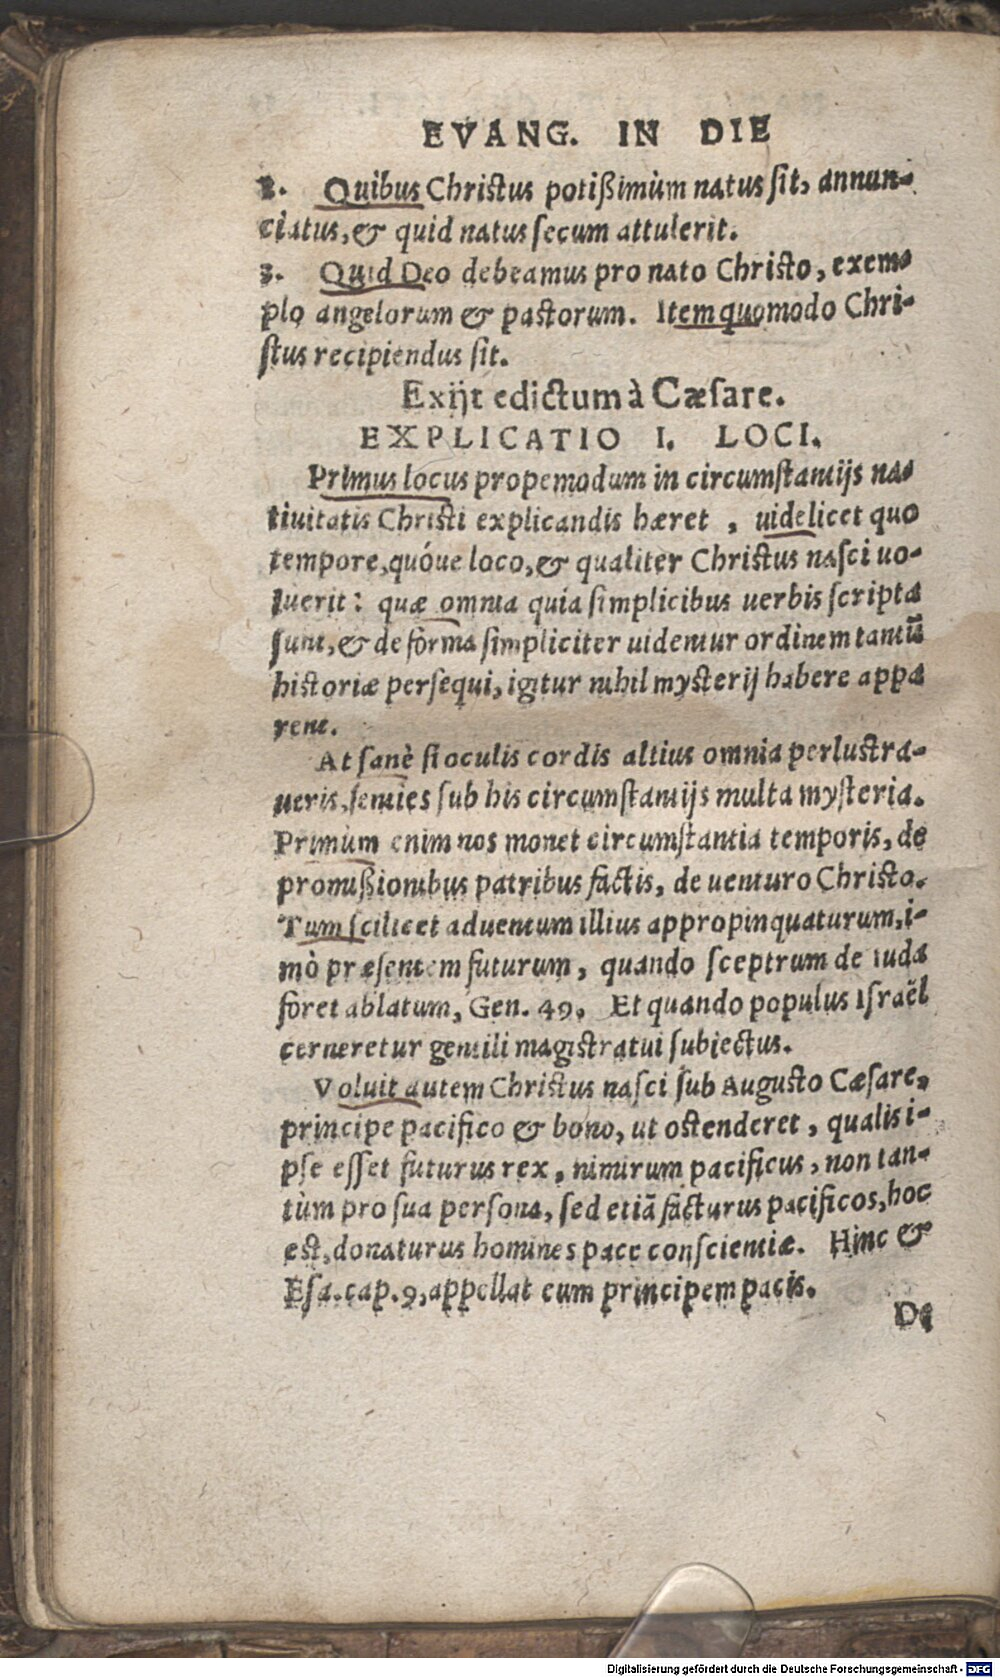 EVANG. IN DIE
2. Quibus Christus potißimùm natus sit, annun-
ciatus, & quid natus secum attulerit.
3. Quid Deo debeamus pro nato Christo, exem-
plo angelorum & pastorum. Item quomodo Chri-
stus recipiendus sit.
Exijt edictum à Cæsare.
EXPLICATIO I. LOCI.
Primus locus propemodum in circumstantijs na-
tiuitatis Christi explicandis hæret, uidelicet quo
tempore, quóue loco, & qualiter Christus nasci uo-
luerit: quæ omnia quia simplicibus uerbis scripta
sunt, & de forma simpliciter uidentur ordinem tantū
historiæ persequi, igitur nihil mysterij habere appa
rent.
At sanè si oculis cordis altius omnia perlustra-
ueris, senties sub his circumstantijs multa mysteria.
Primùm enim nos monet circumstantia temporis, de
promißionibus patribus factis, de uenturo Christo.
Tum scilicet aduentum illius appropinquaturum, i-
mò præsentem futurum, quando sceptrum de Iuda
foret ablatum, Gen. 49. Et quando populus Israël
cerneretur gentili magistratui subiectus.
Voluit autem Christus nasci sub Augusto Cæsare,
principe pacifico & bono, ut ostenderet, qualis i-
pse esset futurus rex, nimirum pacificus, non tan-
tùm pro sua persona, sed etiā facturus pacificos, hoc
est, donaturus homines pace conscientiæ. Hinc &
Esa. cap. 9, appellat eum principem pacis.
De
Digitalisierung gefördert durch die Deutsche Forschungsgemeinschaft - DFG